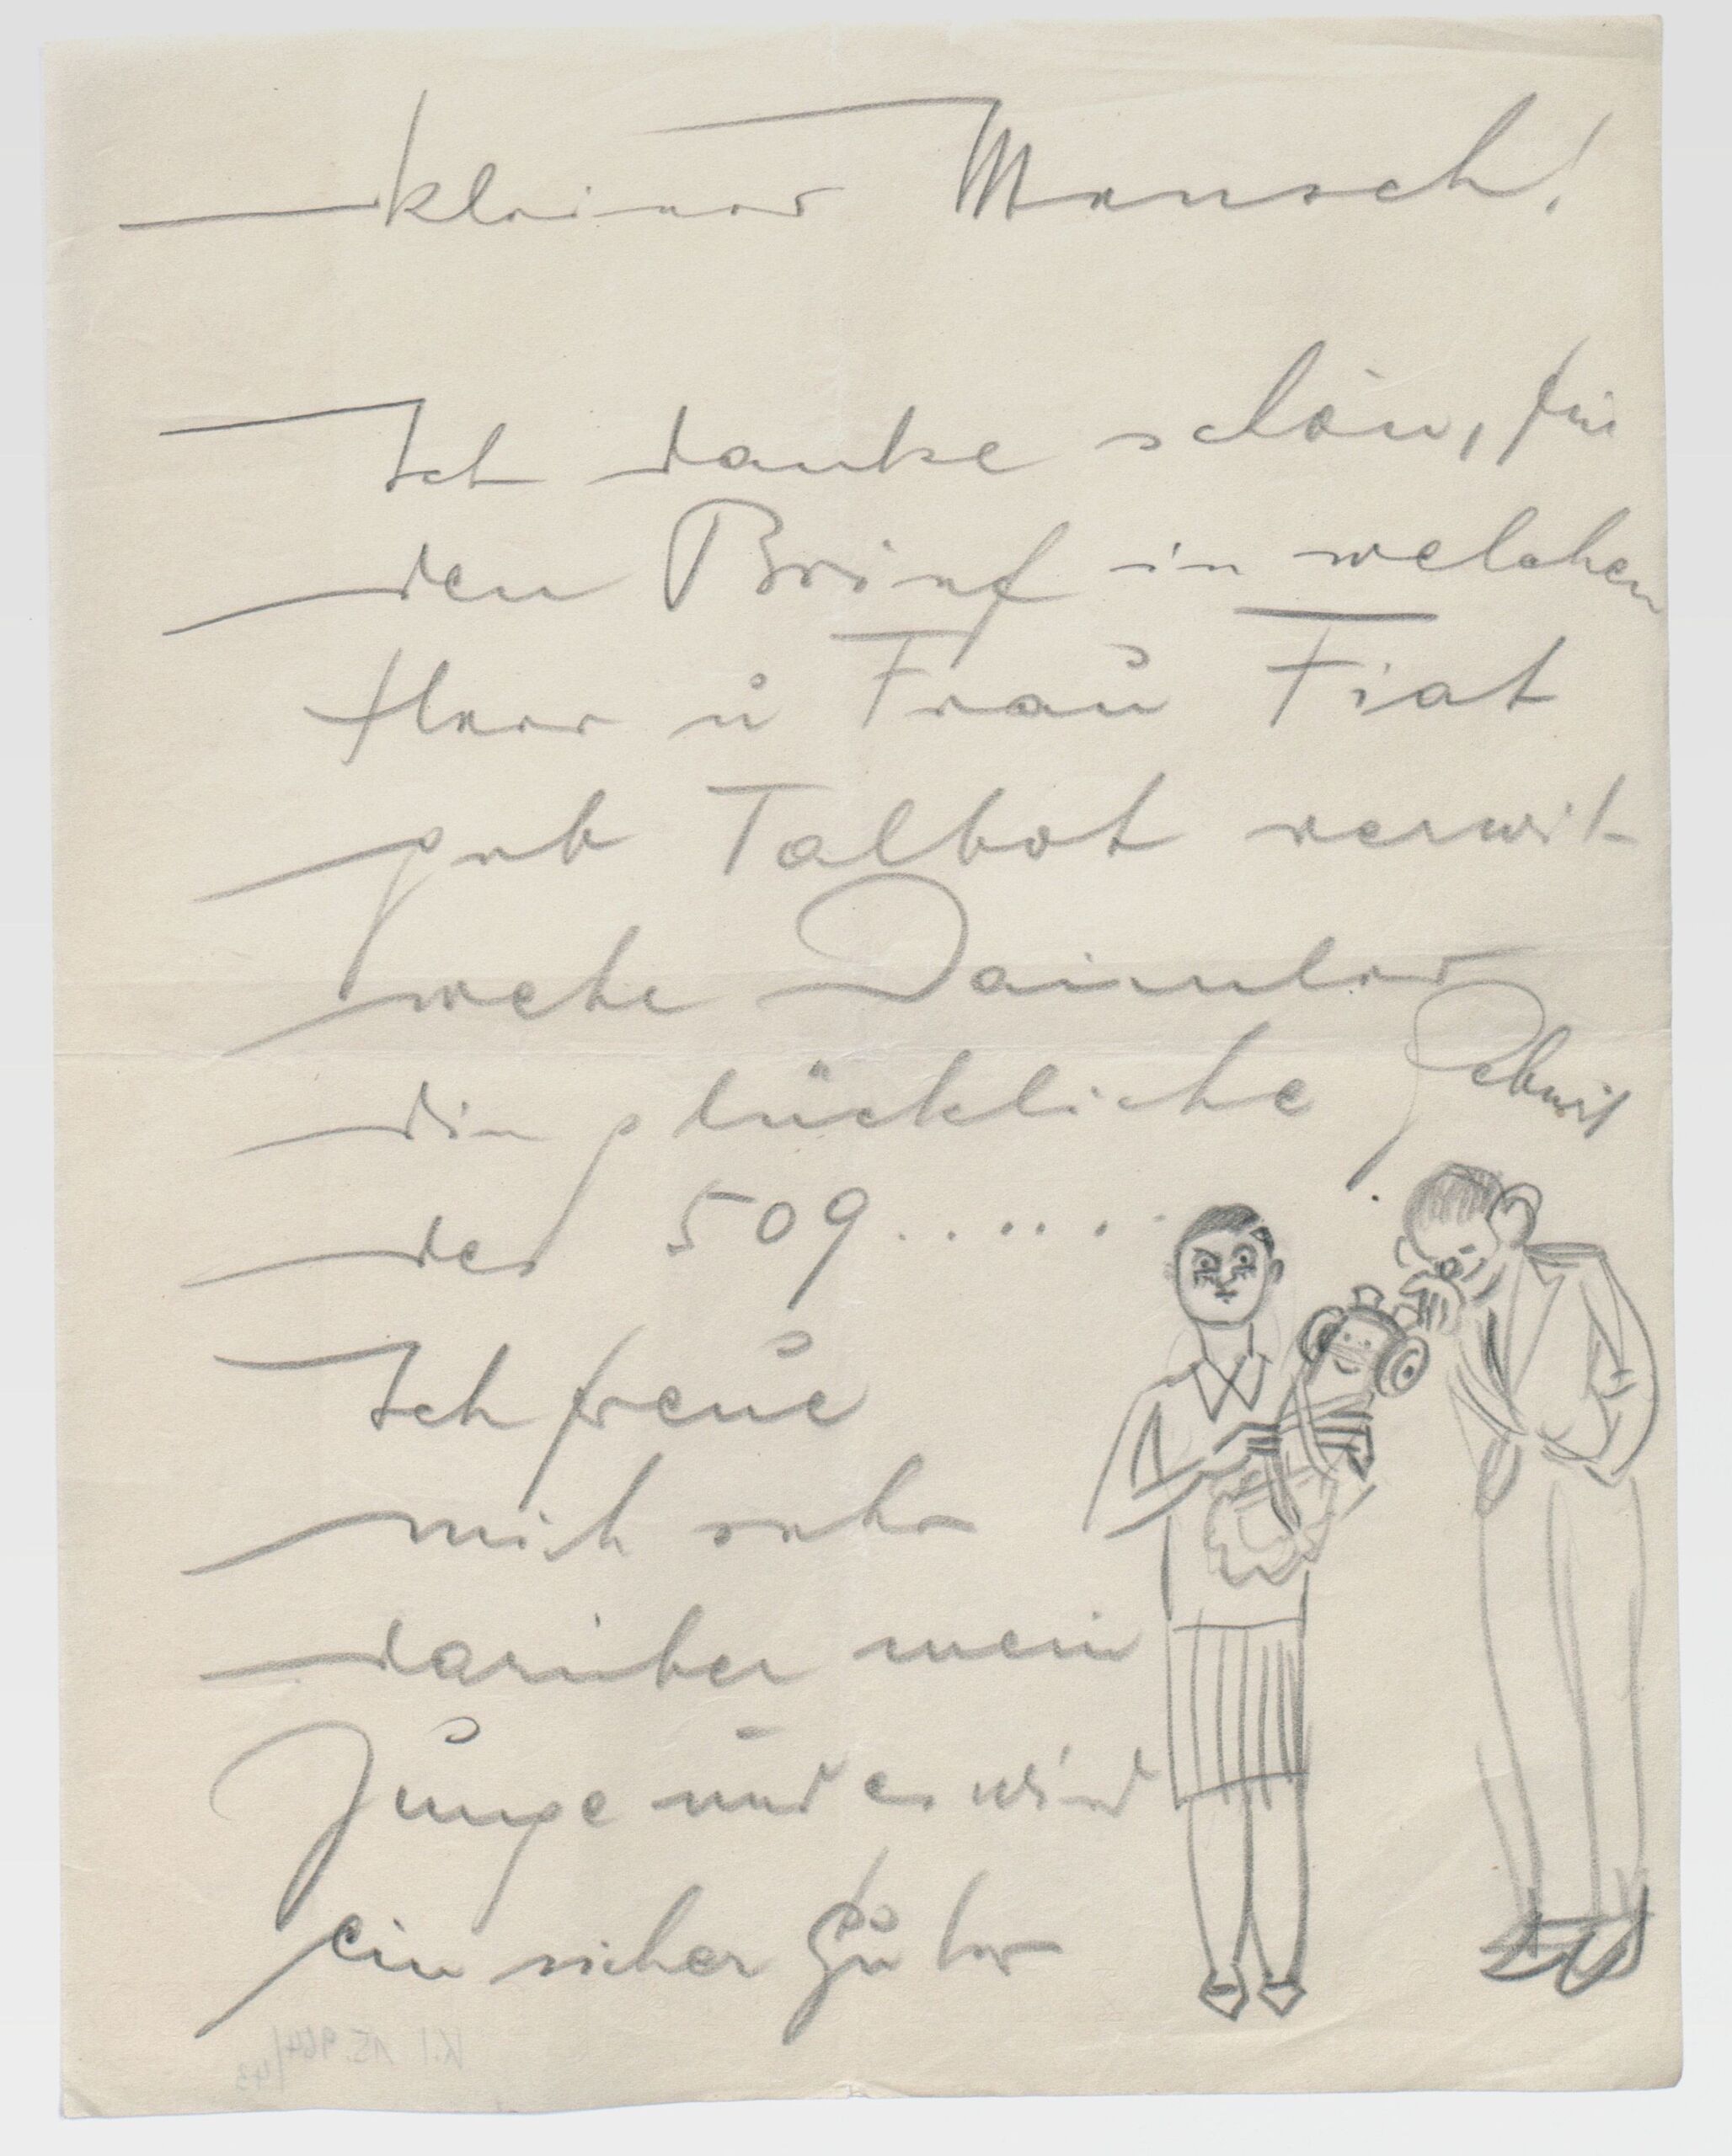 kleiner Mensch!
Ich danke schön, für
den Brief in welchen
Herr u Frau Fiat
geb Talbot verwit-
wete Daimler
die glückliche Geburt
des 509......
Ich freue
mich sehr
darüber mein
Junge und es wird
ein sicher guter